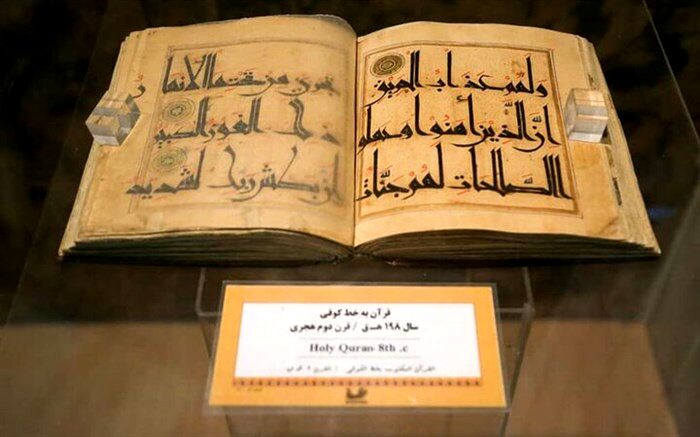 ولهم عذاب الحريق
ان الذين امنوا وعملوا
الصالحات لهم جنات
تجري من تحتها الانها
ر ذلك الفوز الكبير
ان بطش ربك لشديد
قرآن به خط کوفی
سال ۱۹۸ هـ.ق / قرن دوم هجری
Holy Quran 8th .c
القرآن المکتوب بخط الکوفی / القرن